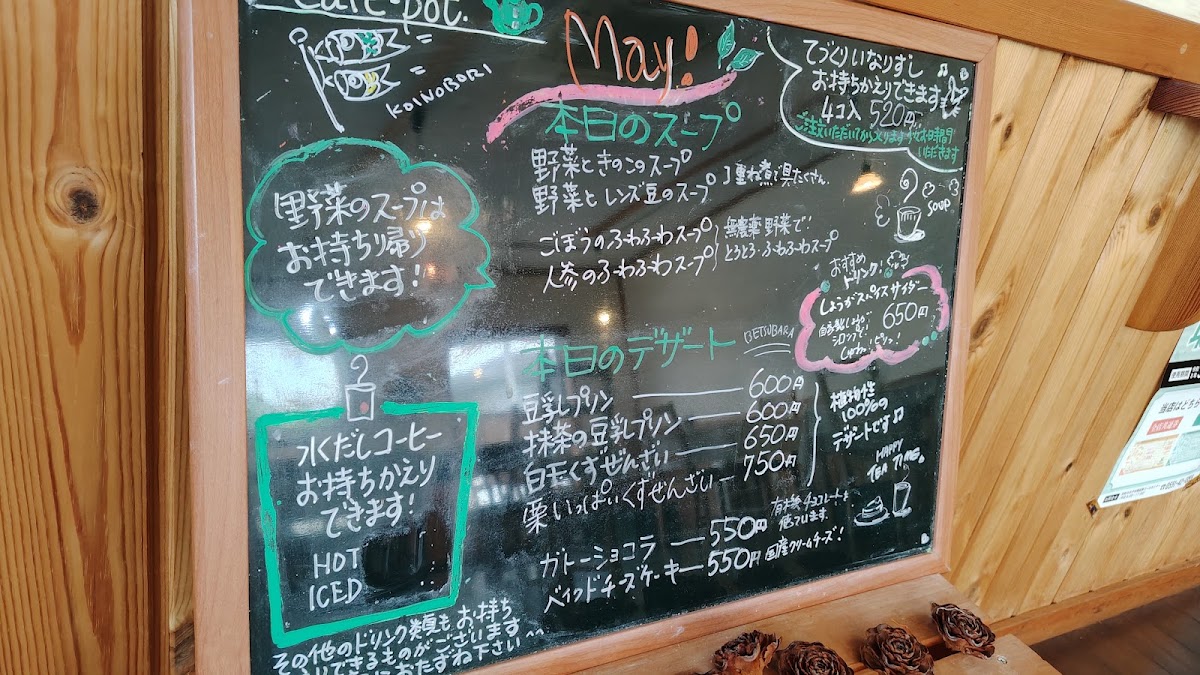 cafe-pot.
KOINOBORI
May!
てづくりいなりずし
お持ちかえりできます♪
4コ入 520円
いただきます
本日のスープ
野菜ときのこのスープ
野菜とレンズ豆のスープ
重ね煮で具たくさん。
ごぼうのふわふわスープ
人参のふわふわスープ
無農薬野菜で、
とろとろ・ふわふわスープ
SOUP
野菜のスープは
お持ち帰り
できます!
おすすめ
ドリンク!
しょうがスパイスサイダー
650円
自家製しょうが
シロップで、
本日のデザート
BETSUBARA
豆乳プリン 600円
抹茶の豆乳プリン 600円
白玉くずぜんざい 650円
栗いっぱいくずぜんざい 750円
植物性
100%の
デザートです♪
HAPPY
TEA TIME。
ガトーショコラ 550円
有機チョコレートを
使ています。
ベイクドチーズケーキ 550円
国産クリームチーズ!
水だしコーヒー
お持ちかえり
できます!
HOT
ICED
その他のドリンク類もお持ち
できるものがございます
におたずね下さい